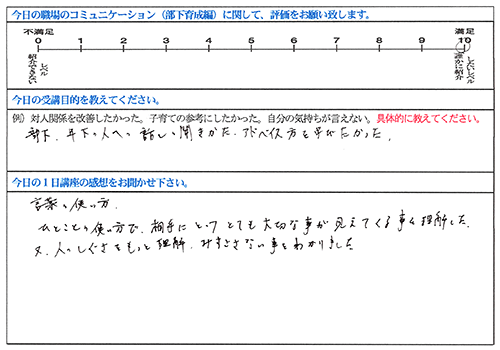 今日の職場のコミュニケーション（部下育成編）に関して、評価をお願い致します。
不満足 満足
0 1 2 3 4 5 6 7 8 9 10
紹介できないレベル
誰かに紹介したいレベル
今日の受講目的を教えてください。
例）対人関係を改善したかった。子育ての参考にしたかった。自分の気持ちが言えない。具体的に教えてください。
部下、年下の人への話しの聞きかた、アドバイス方を学びたかった。
今日の１日講座の感想をお聞かせ下さい。
言葉の使い方
ひとことの使い方で、相手にとって とても大切な事が見えてくる事を理解した。
又、人のしぐさをもっと理解、みすごさない事をわかりました